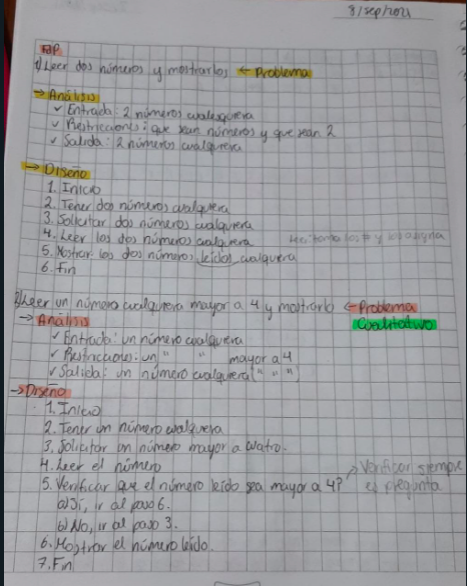 8/sep/2021
FDP
1) Leer dos números y mostrarlos ← Problema
→ Análisis
✓ Entrada: 2 números cualesquiera
✓ Restricciones: que sean números y que sean 2
✓ Salida: 2 números cualquiera
→ Diseño
1. Inicio
2. Tener dos números cualquiera
3. Solicitar dos números cualquiera
4. Leer los dos números cualquiera
los # y los asigna
5. Mostrar los dos números leídos cualquiera
6. Fin
2) Leer un número cualquiera mayor a 4 y mostrarlo ← Problema
Cualitativo
→ Análisis
✓ Entrada: un número cualquiera
✓ Restricciones: un " " mayor a 4
✓ Salida: un número cualquiera (" " ")
→ Diseño
1. Inicio
2. Tener un número cualquiera
3. Solicitar un número mayor a cuatro.
4. Leer el número
5. Verificar que el número leído sea mayor a 4?
→ Verificar siempre
es pregunta
a) Sí, ir al paso 6.
b) No, ir al paso 3.
6. Mostrar el número leído.
7. Fin